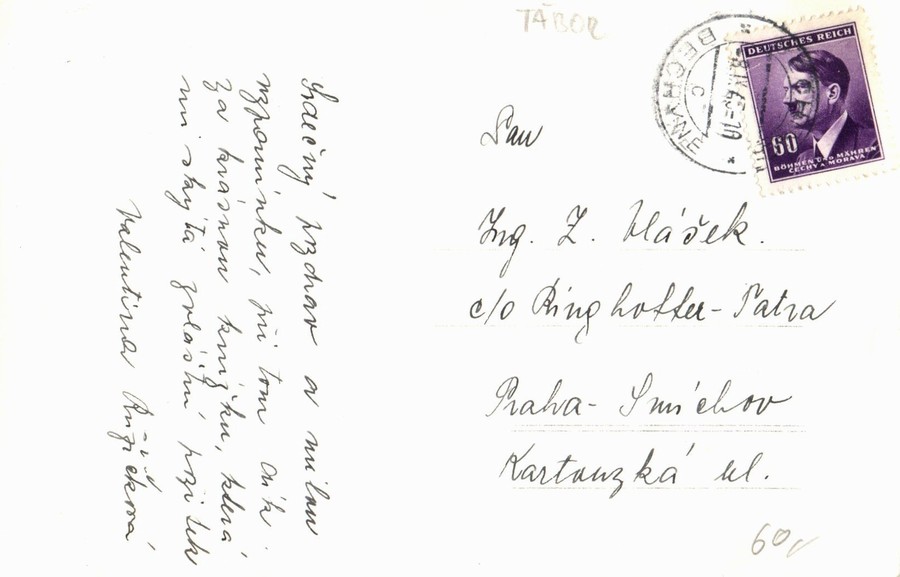 TÁBOR
BECHYNĚ
DEUTSCHES REICH
60
BÖHMEN UND MÄHREN
ČECHY A MORAVA
Pan
Ing. Z. Vlášek.
c/o Ringhoffer-Tatra
Praha- Smíchov
Kartouzká ul.
60
Srdečný pozdrav a milou
vzpomínku, při tom dík
za krásnou knížku, která
mi skýtá zvláštní požitek
Valentina Růžičková